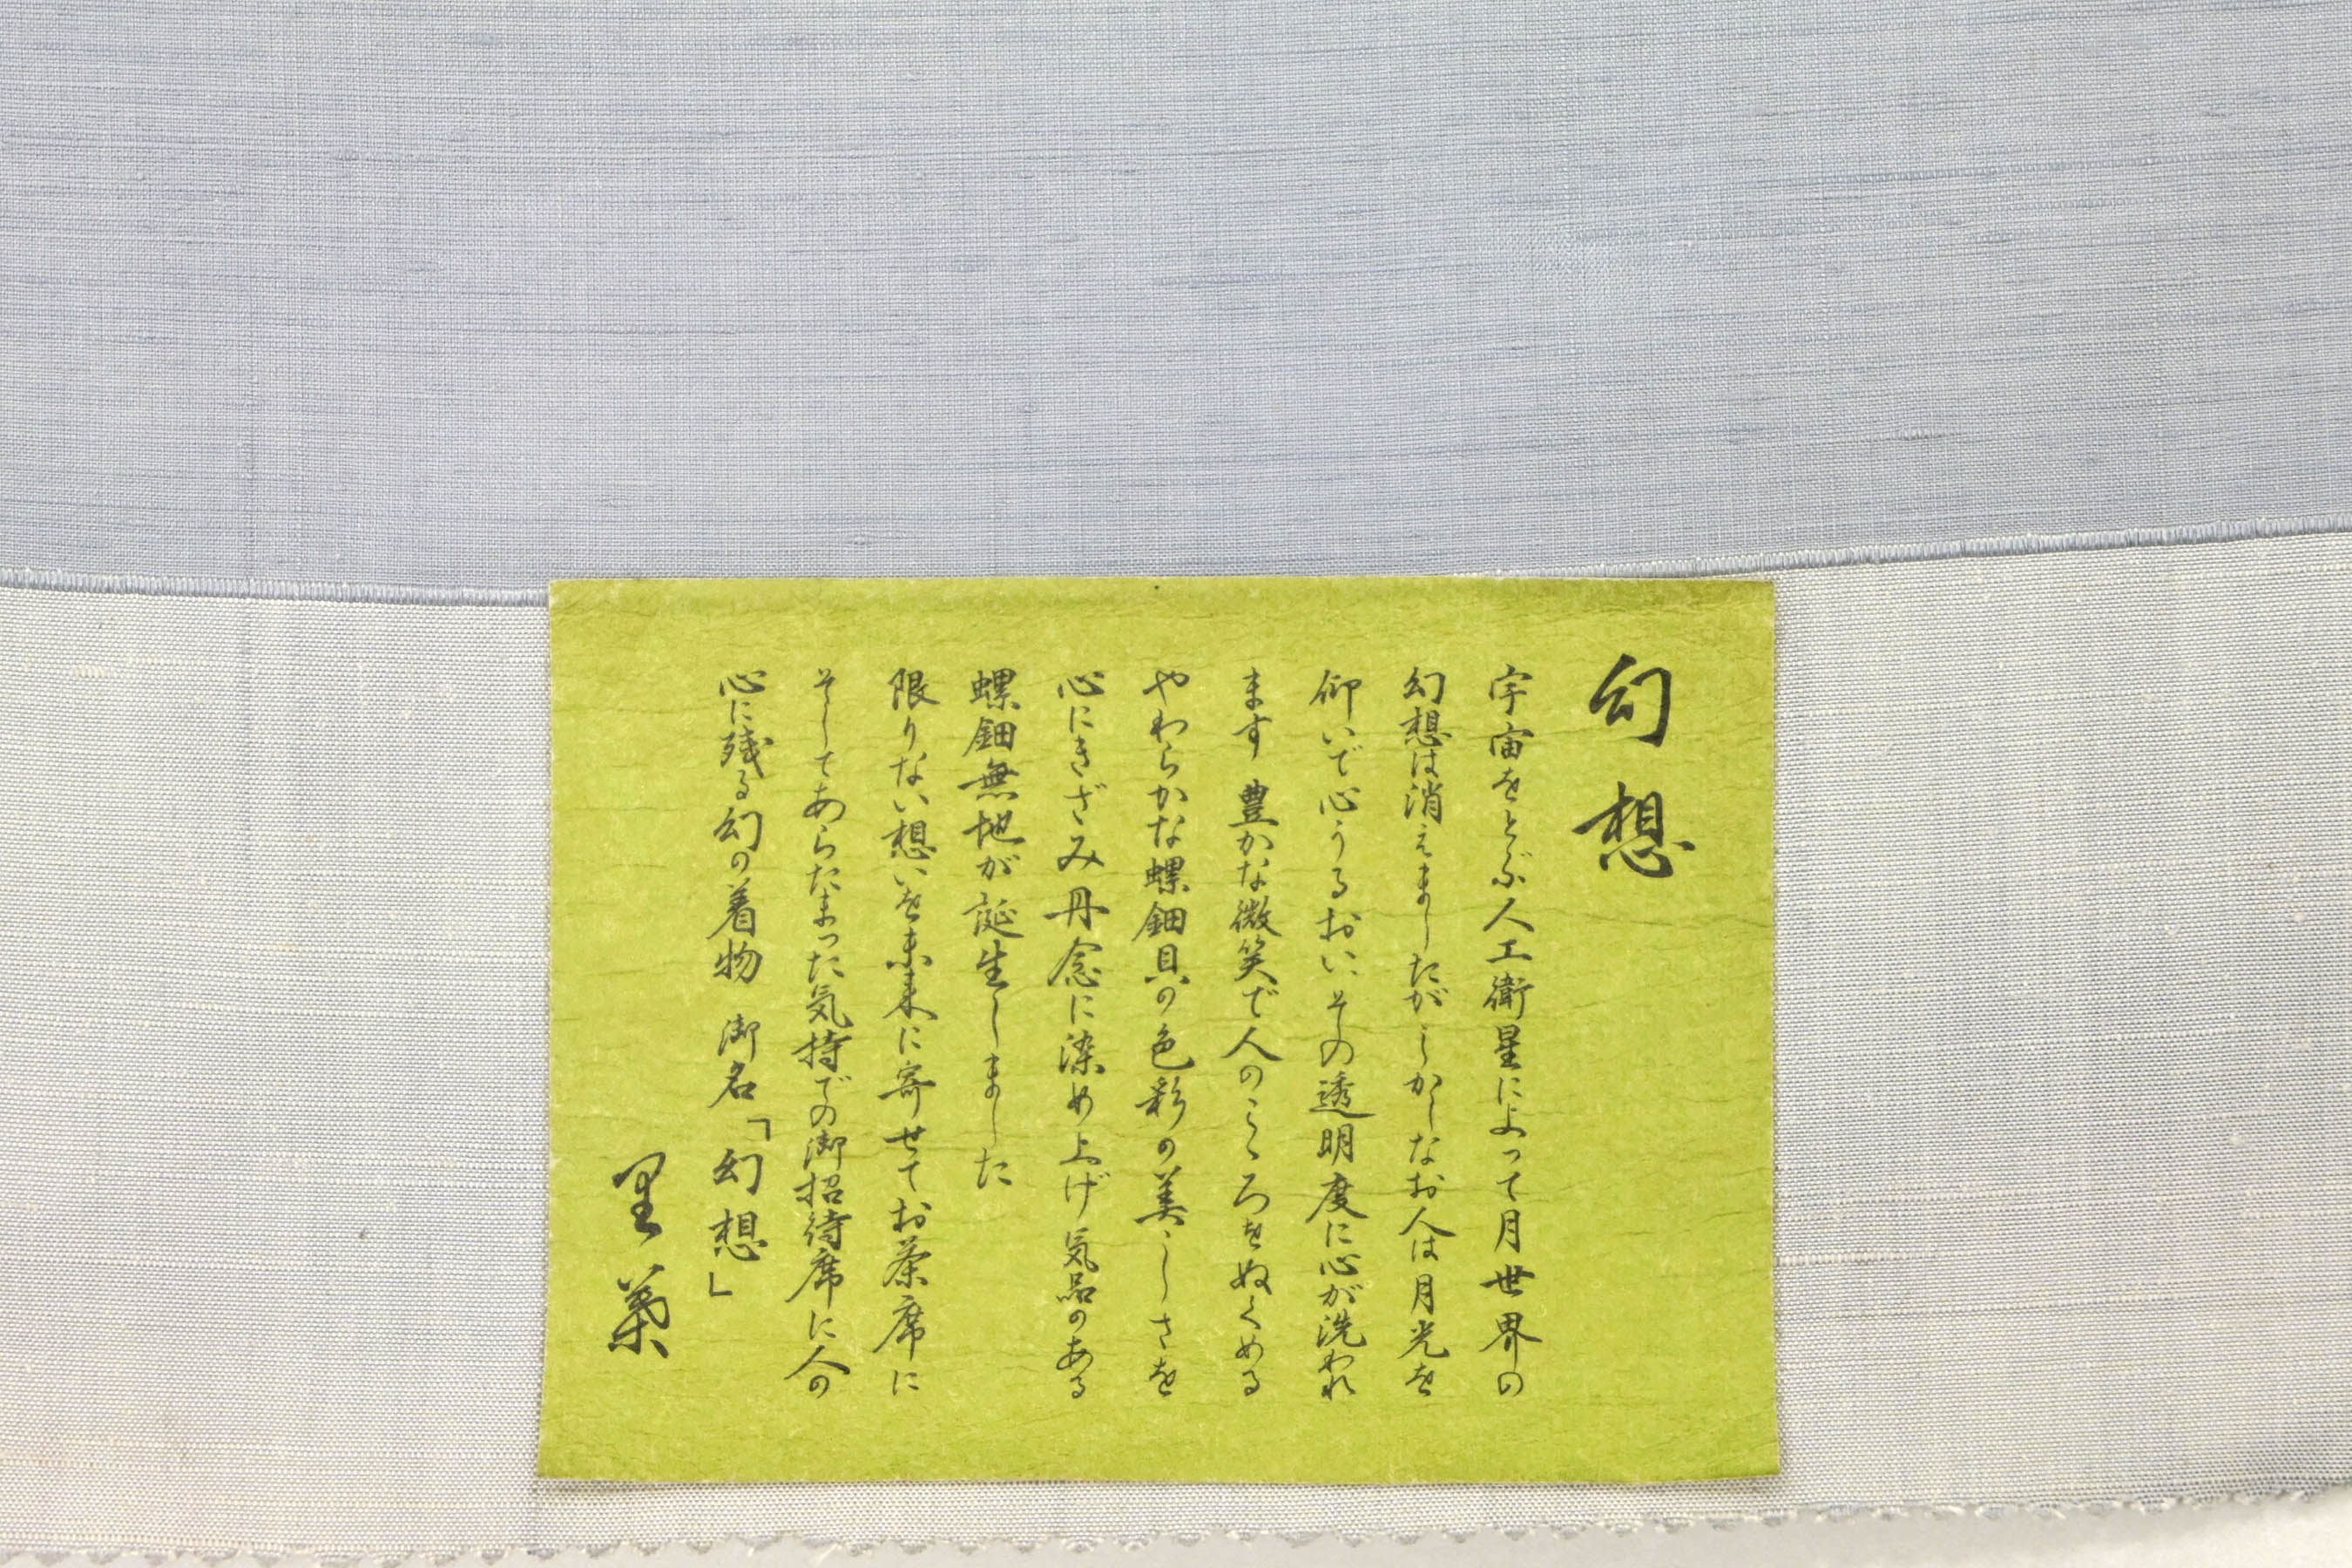 幻想
宇宙をとぶ人工衛星によって月世界の
幻想は消えましたがしかしなお人は月光を
仰いで心うるおい、その透明度に心が洗われ
ます 豊かな微笑で人のこゝろをぬくめる
やわらかな螺鈿貝の色彩の美しさを
心にきざみ丹念に染め上げ気品のある
螺鈿無地が誕生しました
限りない想いを未来に寄せてお茶席に
そしてあらたまった気持での御招待席に人の
心に残る幻の着物 御名「幻想」
里葉